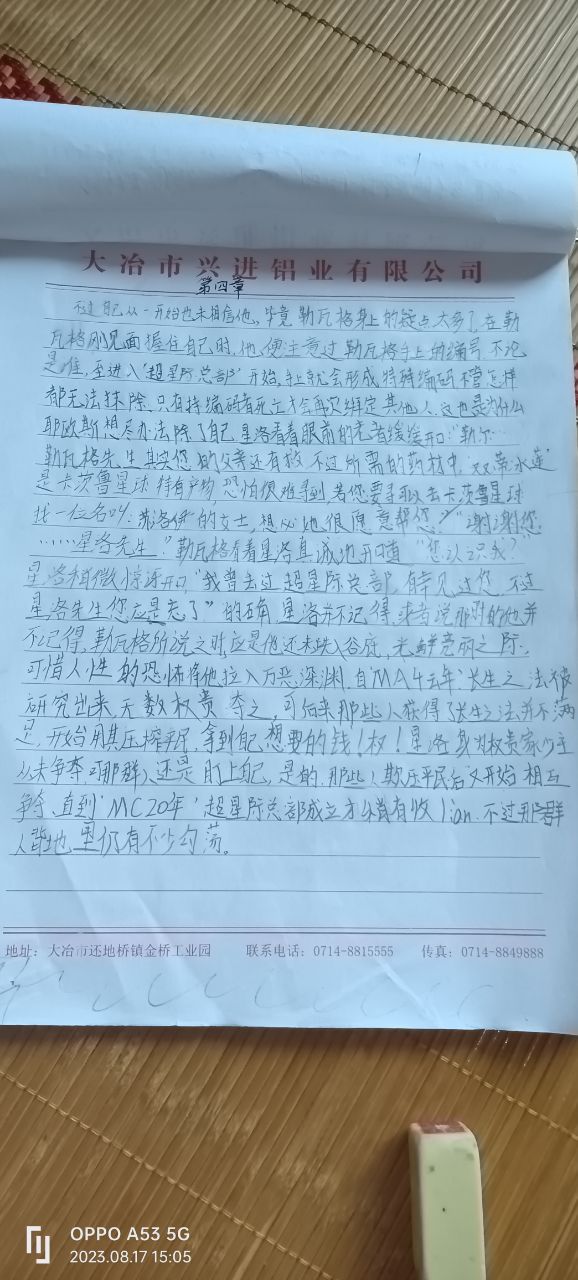 大冶市兴进铝业有限公司
第四章
不过自己从一开始也未相信他，毕竟勒瓦格身上的疑点太多了，在勒
瓦格刚见面握住自己时，他便注意过勒瓦格手上的编号，不论
是谁，至进入“超星际总部”开始，手上就会形成特殊编码，不管怎样
都无法抹除，只有持编码者死亡才会再次绑定其他人，这也是为什么
耶欧斯想尽办法除了自己，星洛看着眼前的老者缓缓开口：“勒尔…
勒瓦格先生其实您的父亲还有救，不过所需的药材中，双蒂水莲
是卡茨鲁星球特有产物，恐怕很难寻到，若您要寻可以去卡茨鲁星球
找一位名叫：苏洛伊的女士，想必她很愿意帮您。”“谢谢您，
……星洛先生。”勒瓦格看着星洛真诚地开口道“您认识我？”
星洛稍微惊讶开口，“我曾去过超星际总部，有幸见过您，不过
星洛先生您应是忘了”的确，星洛并不记得，来者说那时的他并
不记得，勒瓦格所说之时应是他还未跌入谷底，光鲜亮丽之际，
可惜人性的恐怖将他拉入万恶深渊，自‘MA4去年’长生之法被
研究出来，无数权贵夺之，可后来那些人获得了长生之法并不满
足，开始用其压榨平民，拿到自己想要的钱！权！星洛身为权贵家少主
从未争夺可那群人还是盯上自己，是的，那些人欺压平民后又开始相互
争夺，直到‘MC20年’超星际总部成立才稍有收lian，不过那群
人背地里仍有不少勾荡。
地址：大冶市还地桥镇金桥工业园 联系电话：0714-8815555 传真：0714-8849888
OPPO A53 5G
2023.08.17 15:05